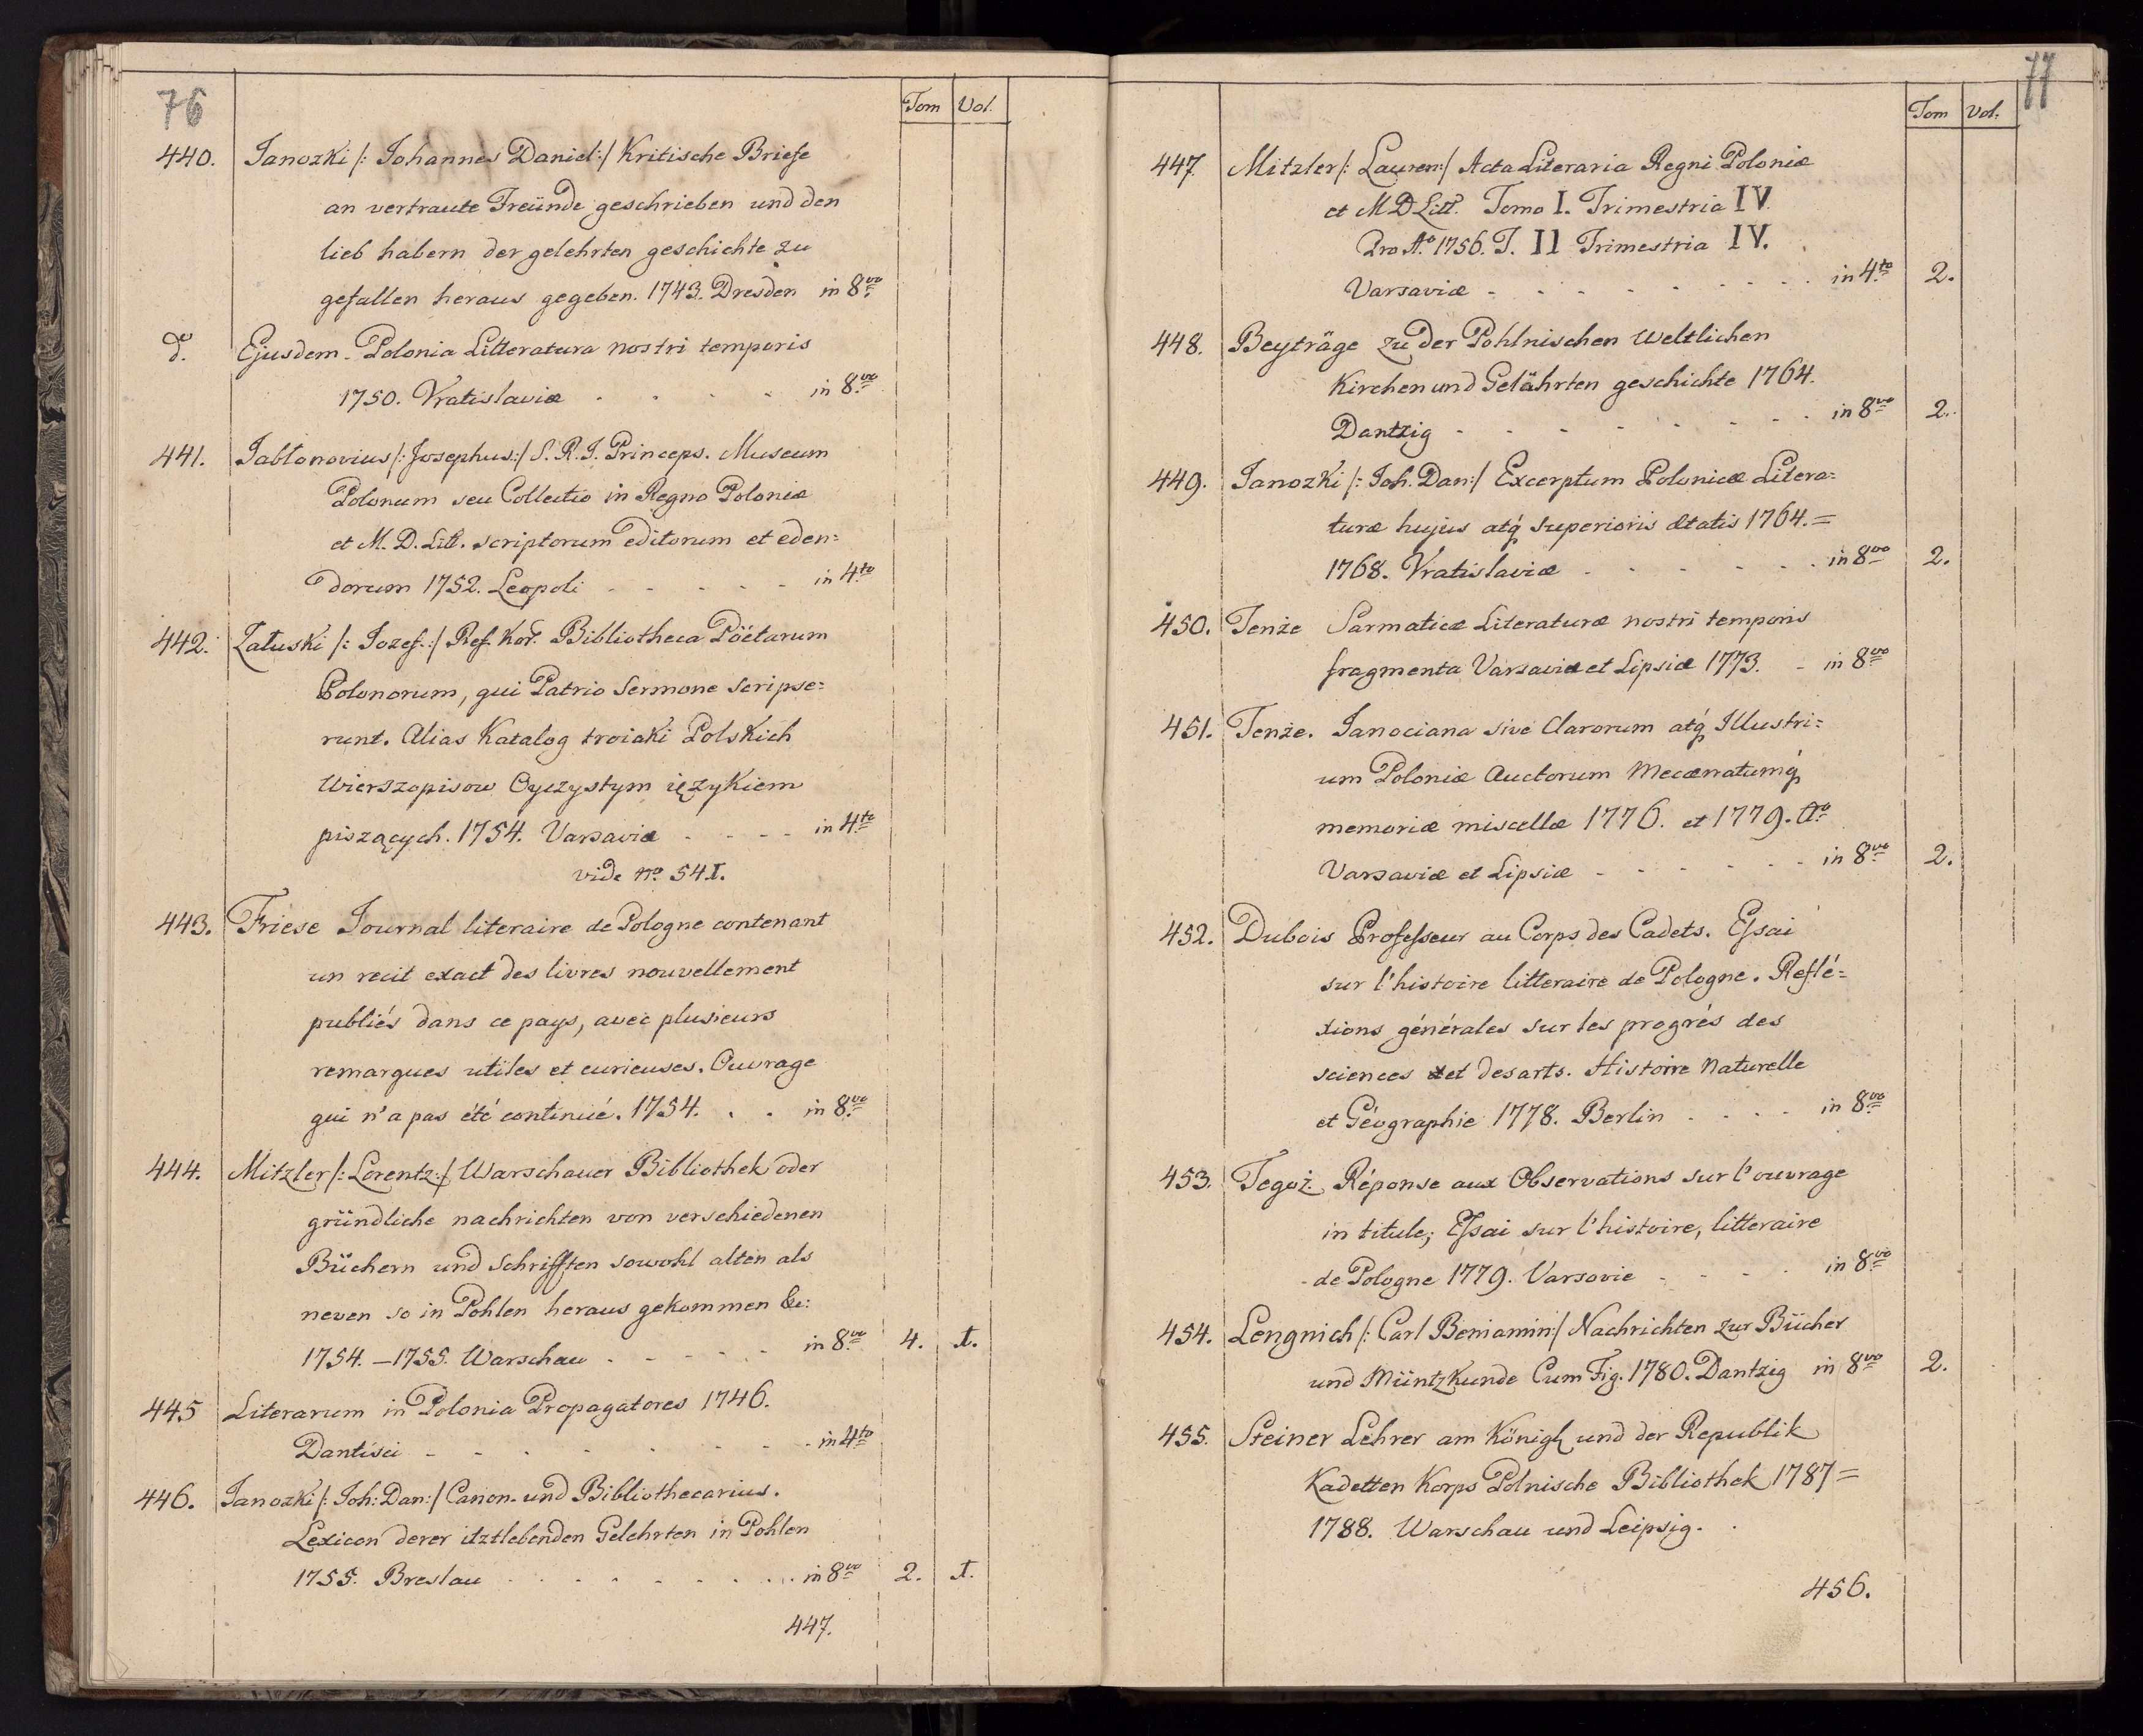 76
Tom Vol.
440. Janozki /: Johannes Daniel :/ Kritische Briefe
an vertraute Freünde geschrieben und den
lieb habern der gelehrten geschichte zu
gefallen heraus gegeben. 1743. Dresden in 8vo
d. Ejusdem. Polonia Litteratura nostri temporis
1750. Vratislaviæ - - - - in 8vo
441. Jabłonovius /: Josephus :/ S. R. I. Princeps. Museum
Polonum seu Collectio in Regno Poloniæ
et M. D. Litt. scriptorum editorum et eden=
dorum 1752. Leopoli - - - - - in 4to
442. Załuski /: Jozef :/ Ref. Kor. Bibliotheca Pöetarum
Polonorum, qui Patrio Sermone scripse=
runt. Alias Katalog troiaki Polskich
Wierszopisow Oyczystym ięzykiem
piszących. 1754. Varsaviæ - - - - in 4to
vide No 541.
443. Friese Journal literaire de Pologne contenant
un recit exact des livres nouvellement
publiés dans ce pays, avec plusieurs
remarques utiles et curieuses. Ouvrage
qui n'a pas été continué. 1754. . . in 8vo
444. Mitzler /: Lorentz :/ Warschauer Bibliothek oder
gründliche nachrichten von verschiedenen
Büchern und schrifften sowohl alten als
neven so in Pohlen heraus gekommen &c:
1754. – 1755. Warschau - - - - - in 8vo 4. I.
445 Literarum in Polonia Propagatores 1746.
Dantisci - - - - - - - - in 4to
446. Janozki /: Joh: Dan: / Canon. und Bibliothecarius.
Lexicon derer itztlebenden Gelehrten in Pohlen
1755. Breslau - - - - - - - in 8vo 2. I.
447.
77
Tom Vol.
447. Mitzler /: Lauren: / Acta Literaria Regni Poloniæ
et M D Litt. Tomo I. Trimestria IV.
Pro Ao 1756. T. II Trimestria IV.
Varsaviæ - - - - - - - - in 4to 2.
448. Beyträge zu der Pohlnischen Weltlichen
Kirchen und Gelährten geschichte 1764.
Dantzig - - - - - - - in 8vo 2.
449. Janozki /: Joh. Dan: / Excerptum Polonicæ Litera=
turæ hujus atq́ superioris ætatis 1764. =
1768. Vratislaviæ - - - - - - in 8vo 2.
450. Tenże Sarmaticæ Literaturæ nostri temporis
fragmenta Varsaviæ et Lipsiæ 1773. - in 8vo
451. Tenże. Janociana sive Clarorum atq́ Illustri=
um Poloniæ Auctorum Mecænatumq́
memoriæ miscellæ 1776. et 1779. Ao
Varsaviæ et Lipsiæ - - - - - in 8vo 2.
452. Dubois Professeur au Corps des Cadets. Essai
sur l'histoire litteraire de Pologne. Reflé=
xions générales sur les progrés des
sciences et des arts. Histoire Naturelle
et Géographie 1778. Berlin - - - - in 8vo
453. Tegoż. Réponse aux Observations sur l'ouvrage
in titule; Essai sur l'histoire, litteraire
- de Pologne 1779. Varsovie - - - - in 8vo
454. Lengnich /: Carl Beniamin: / Nachrichten zur Bücher
und Müntzkunde Cum Fig. 1780. Dantzig in 8vo 2.
455. Steiner Lehrer am Königl und der Republik
Kadetten Korps Polnische Bibliothek 1787 =
1788. Warschau und Leipsig.
456.